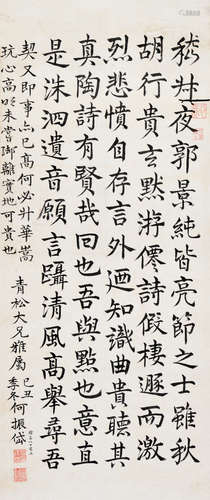 嵇叔夜郭景純皆亮節之士雖秋
胡行貴玄默游僊詩假棲遯而激
烈悲憤自存言外迺知識曲貴聽其
真陶詩有賢哉回也吾與點也意直
是洙泗遺音願言躡清風高舉尋吾
契又即事亦已高何必升華嵩
玩心高明未嘗脚離實地可貴也
青松大兄雅屬
己丑
季冬何振岱